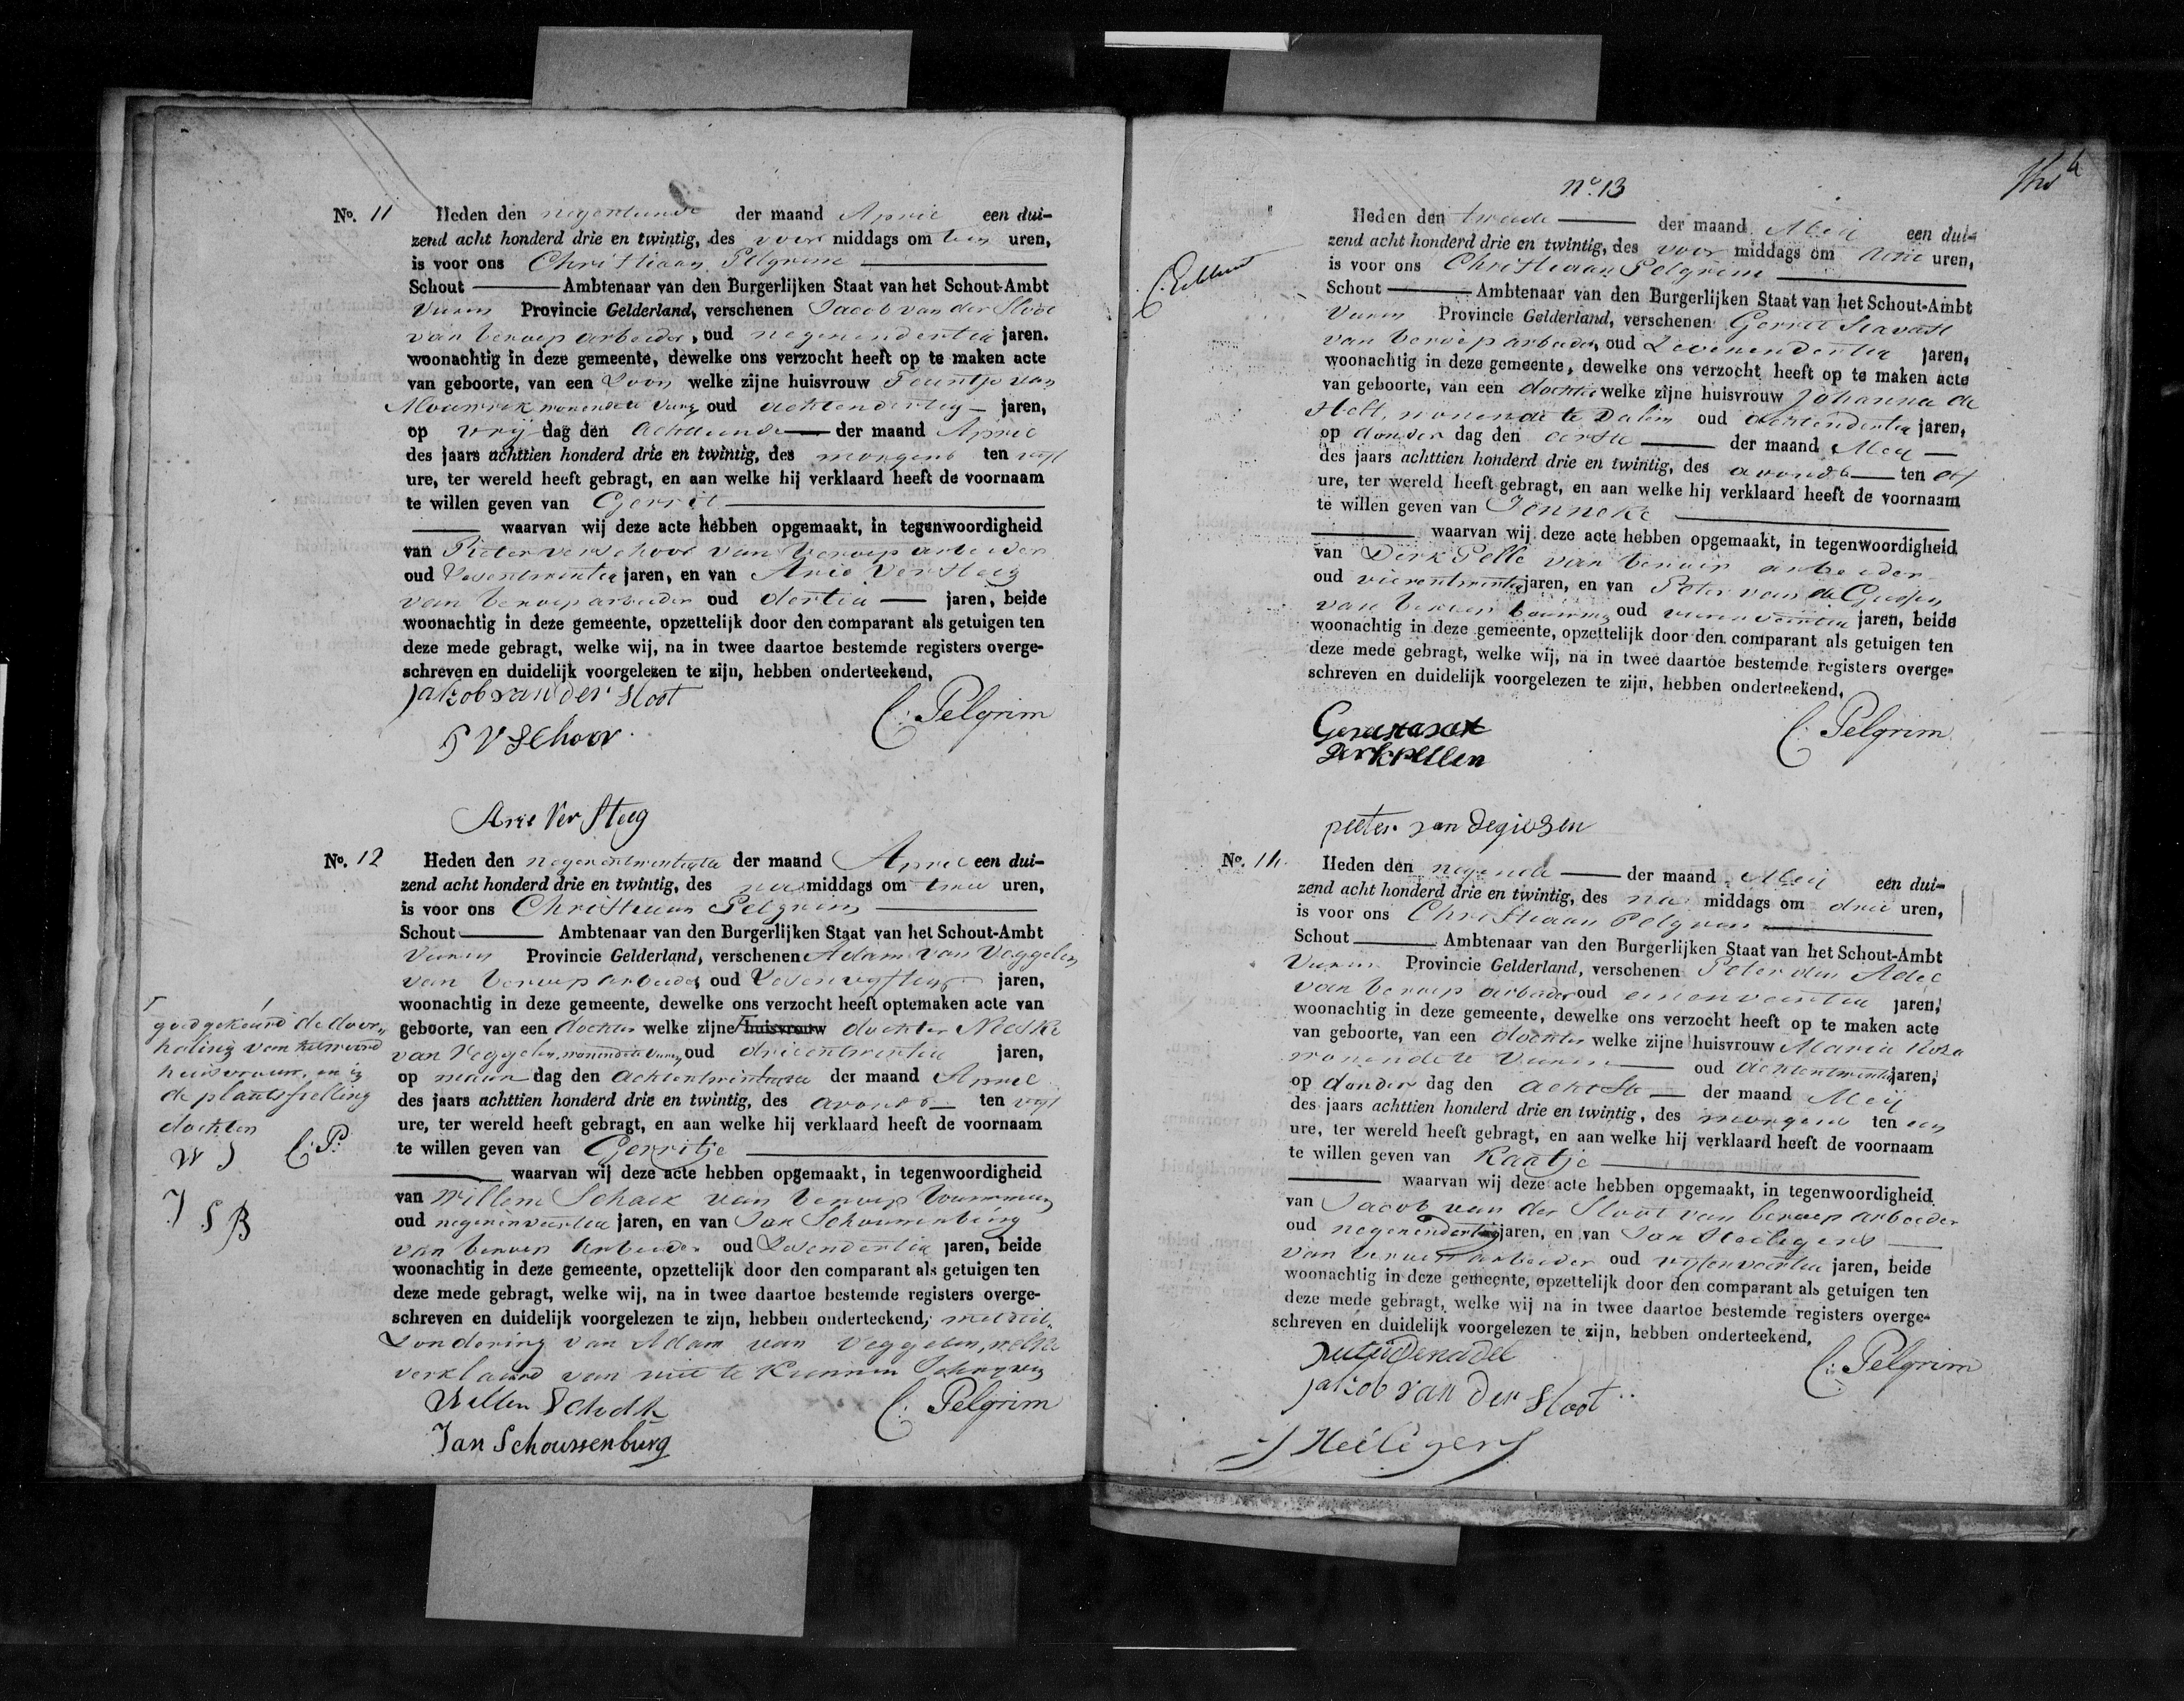 No. 11 Heden den negentiende der maand April een dui-
zend acht honderd drie en twintig, des voor middags om tien uren,
is voor ons Christiaan Pelgrim
Schout Ambtenaar van den Burgerlijken Staat van het Schout-Ambt
Vuren Provincie Gelderland, verschenen Jacob van der Sloot
van beroep arbeider, oud negenendertig jaren.
woonachtig in deze gemeente, dewelke ons verzocht heeft op te maken acte
van geboorte, van een Zoon welke zijne huisvrouw Teuntje van
Mourik wonende te Vuren oud achtendertig jaren,
op vrij dag den achttiende der maand April
des jaars achttien honderd drie en twintig, des morgens ten vijf
ure, ter wereld heeft gebragt, en aan welke hij verklaard heeft de voornaam
te willen geven van Gerrit
waarvan wij deze acte hebben opgemaakt, in tegenwoordigheid
van Pieter verschoor van beroep arbeider
oud Zesentwintig jaren, en van Arie Versteeg
van beroep arbeider oud dertig jaren, beide
woonachtig in deze gemeente, opzettelijk door den comparant als getuigen ten
deze mede gebragt, welke wij, na in twee daartoe bestemde registers overge-
schreven en duidelijk voorgelezen te zijn, hebben onderteekend,
jakob van der sloot
C: Pelgrim
P V Schoor
Arie Ver Steeg
No. 12 Heden den negenentwintigste der maand April een dui-
zend acht honderd drie en twintig, des na middags om twee uren,
is voor ons Christiaan Pelgrim
Schout Ambtenaar van den Burgerlijken Staat van het Schout-Ambt
Vuren Provincie Gelderland, verschenen Adam van Veggelen
van beroep arbeider oud Zevenvijftig jaren,
woonachtig in deze gemeente, dewelke ons verzocht heeft optemaken acte van
geboorte, van een dochter welke zijne huisvrouw dochter Neeske
van Veggelen, wonende te Vuren oud drieentwintig jaren,
op maan dag den achtentwintigste der maand April
des jaars achttien honderd drie en twintig, des avonds ten vijf
ure, ter wereld heeft gebragt, en aan welke hij verklaard heeft de voornaam
te willen geven van Gerritje
waarvan wij deze acte hebben opgemaakt, in tegenwoordigheid
van Willem Schalk van beroep bouwman
oud negenenveertig jaren, en van Jan Schouwenburg
van beroep arbeider oud Zesendertig jaren, beide
woonachtig in deze gemeente, opzettelijk door den comparant als getuigen ten
deze mede gebragt, welke wij, na in twee daartoe bestemde registers overge-
schreven en duidelijk voorgelezen te zijn, hebben onderteekend, met uit-
zondering van Adam van Veggelen, welke
verklaard van niet te kunnen Schryven
Willem Schalk
C: Pelgrim
Jan Schouwenburg
goedgekeurd de door-
haling van het woord
huisvrouw, en in
de plaatsstelling
dochter
W S C: P:
J S B
No. 13
Heden den tweede der maand Mei een dui-
zend acht honderd drie en twintig, des voor middags om uren,
is voor ons Christiaan Pelgrim
Schout Ambtenaar van den Burgerlijken Staat van het Schout-Ambt
Vuren Provincie Gelderland, verschenen Gerrit
van beroep arbeider, oud Zevenendertig jaren,
woonachtig in deze gemeente, dewelke ons verzocht heeft op te maken acte
van geboorte, van een dochter welke zijne huisvrouw Johanna de
wonende te Dalem oud achtendertig jaren,
op donder dag den eerste der maand Mey
des jaars achttien honderd drie en twintig, des avonds ten elf
ure, ter wereld heeft gebragt, en aan welke hij verklaard heeft de voornaam
te willen geven van Jenneke
waarvan wij deze acte hebben opgemaakt, in tegenwoordigheid
van Dirk Pelle van beroep arbeider
oud vierentwintig jaren, en van Peter van de Giessen
van beroep bouwman oud jaren, beide
woonachtig in deze gemeente, opzettelijk door den comparant als getuigen ten
deze mede gebragt, welke wij, na in twee daartoe bestemde registers overge-
schreven en duidelijk voorgelezen te zijn, hebben onderteekend,
C: Pelgrim
Derk pellen
peeter van degiesen
No. 14. Heden den negende der maand Mei een dui-
zend acht honderd drie en twintig, des na middags om drie uren,
is voor ons Christiaan Pelgrim
Schout Ambtenaar van den Burgerlijken Staat van het Schout-Ambt
Vuren Provincie Gelderland, verschenen Peter den Adel
van beroep arbeider oud eenenveertig jaren,
woonachtig in deze gemeente, dewelke ons verzocht heeft op te maken acte
van geboorte, van een dochter welke zijne huisvrouw Maria Roza
wonende te Vuren oud achtentwintig jaren,
op donder dag den achtste der maand Mey
des jaars achttien honderd drie en twintig, des morgens ten een
ure, ter wereld heeft gebragt, en aan welke hij verklaard heeft de voornaam
te willen geven van Kaatje
waarvan wij deze acte hebben opgemaakt, in tegenwoordigheid
van Jacob van der Sloot van beroep arbeider
oud negenendertig jaren, en van Jan Heiligers
van beroep arbeider oud vijfenveertig jaren, beide
woonachtig in deze gemeente, opzettelijk door den comparant als getuigen ten
deze mede gebragt, welke wij na in twee daartoe bestemde registers overge-
schreven en duidelijk voorgelezen te zijn, hebben onderteekend,
C: Pelgrim
jakob van der sloot
J Heiligers